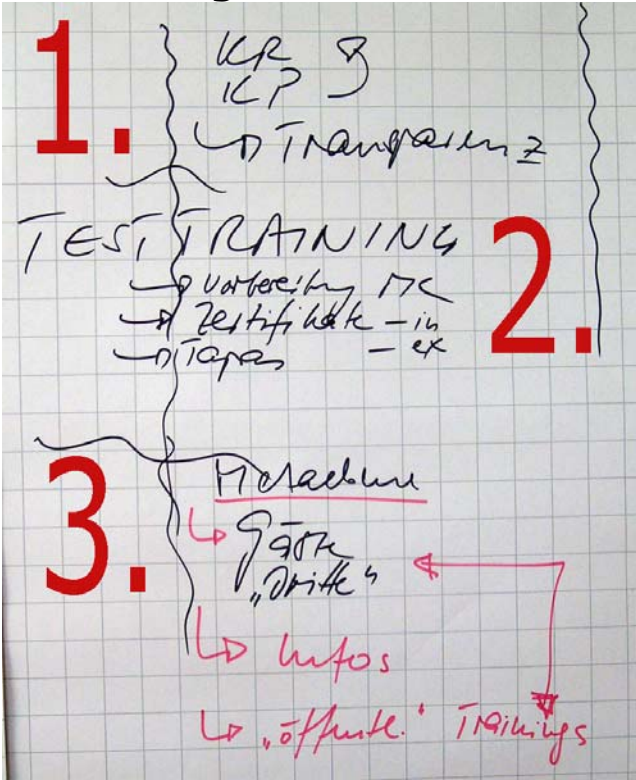 1.
KR
KP
Transparenz
TESTTRAINING
2.
Vorbereitung MC
Zertifikate - in
Tapas - ex
3.
Metaebene
Gäste
„Dritte“
Infos
„öffentl.“ Trainings